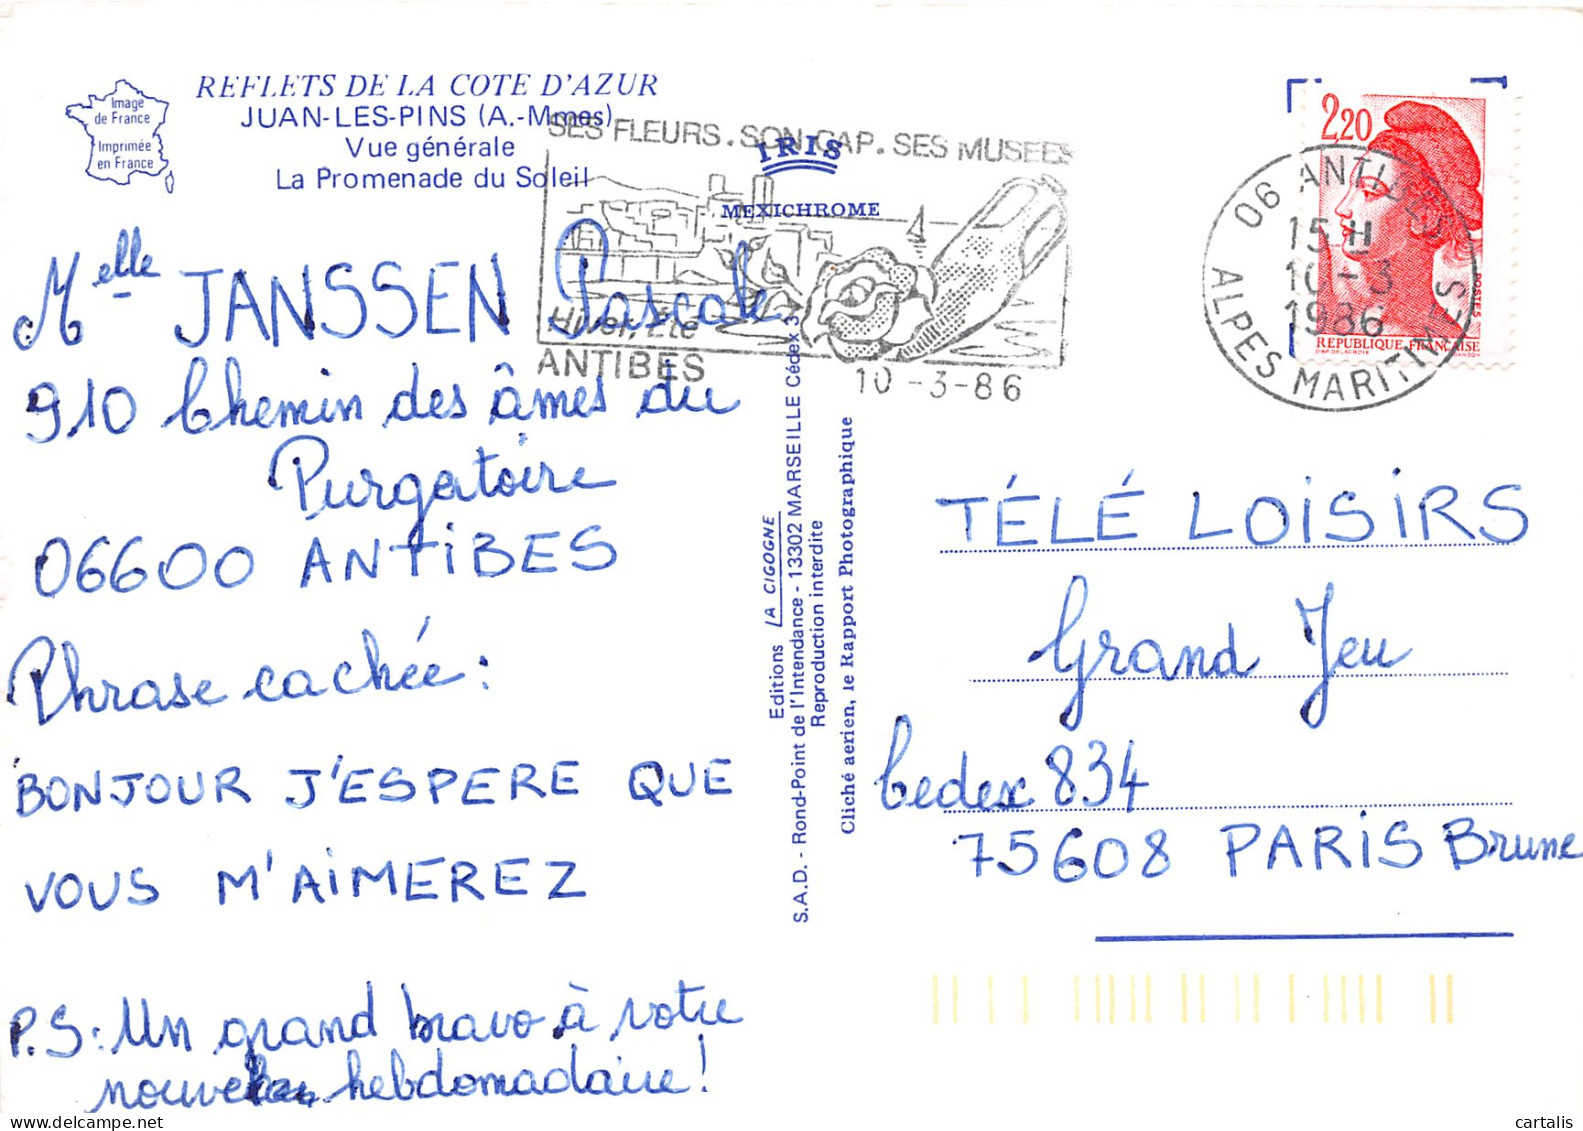 REFLETS DE LA COTE D'AZUR
JUAN-LES-PINS (A.-Mmes)
Vue générale
La Promenade du Soleil
Image
de France
Imprimée
en France
SES FLEURS. SON CAP. SES MUSEES
IRIS
MEXICHROME
Hiver, Eté
ANTIBES
10-3-86
2,20
POSTES
REPUBLIQUE FRANÇAISE
06 ANTIBES
15 H
10-3
1986
ALPES MARITIMES
Melle JANSSEN Pascale
910 Chemin des âmes du
Purgatoire
06600 ANTIBES
Phrase cachée :
BONJOUR J'ESPERE QUE
VOUS M'AIMEREZ
P.S : Un grand bravo à votre
nouvel hebdomadaire !
Editions LA CIGOGNE
S.A.D. - Rond-Point de l'Intendance - 13302 MARSEILLE Cédex 3
Reproduction interdite
Cliché aerien, le Rapport Photographique
TÉLÉ LOISIRS
Grand Jeu
Cedex 834
75608 PARIS Brune
cartalis